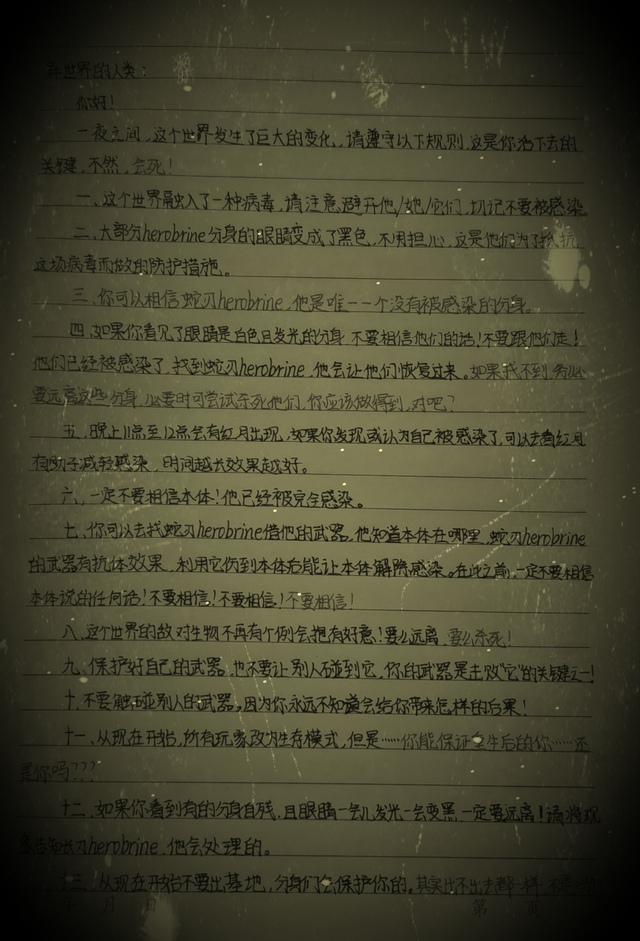 在世界的人类：
你好！
一夜之间，这个世界发生了巨大的变化，请遵守以下规则，这是你活下去的
关键，不然，会死！
一、这个世界融入了一种病毒，请注意避开他/她/它们，切记不要被感染。
二、大部分herobrine分身的眼睛变成了黑色，不用担心，这是他们为了抵抗
这场病毒而做的防护措施。
三、你可以相信蛇刃herobrine，他是唯一一个没有被感染的分身。
四、如果你看见了眼睛是白色且发光的分身，不要相信他们的话！不要跟他们走！
他们已经被感染了，找到蛇刃herobrine，他会让他们恢复过来，如果找不到，务必
要远离这些分身，必要时可尝试杀死他们，你应该做得到，对吧？
五、晚上11点至12点会有红月出现，如果你发现或认为自己被感染了，可以去看红月
有助于减轻感染，时间越长效果越好。
六、一定不要相信本体！他已经被完全感染。
七、你可以去找蛇刃herobrine借他的武器，他知道本体在哪里，蛇刃herobrine
的武器有抗体效果，利用它伤到本体后能让本体解除感染。在此之前，一定不要相信
本体说的任何话！不要相信！不要相信！不要相信！
八、这个世界的敌对生物不再有个例会抱有好意！要么远离，要么杀死！
九、保护好自己的武器，也不要让别人碰到它，你的武器是击败“它”的关键之一！
十、不要触碰别人的武器。因为你永远不知道会给你带来怎样的后果！
十一、从现在开始，所有玩家改为生存模式，但是……你能保证重生后的你……还
是你吗？？？
十二、如果你看到有的分身自残，且眼睛一会儿发光一会变黑，一定要远离！请将现
象告知长刃herobrine，他会处理的。
十三、从现在开始不要出基地，分身们会保护你的。其实出不出去都一样，不是
年 月 日 第 页